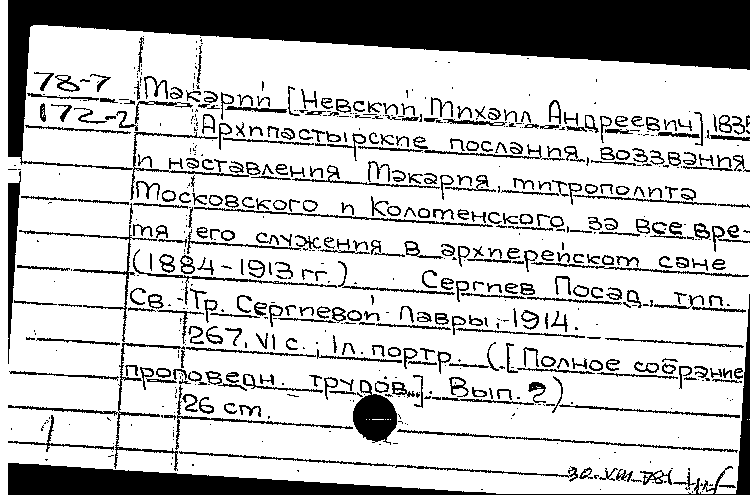 78-7 Макарий [Невский, Михаил Андреевич], 1835
172-2 Архипастырские послания, воззвания
и наставления Макария, митрополита
Московского и Коломенского, за все вре-
мя его служения в архиерейском сане
(1884-1913 гг.). Сергиев Посад, тип.
Св.-Тр. Сергиевой Лавры, 1914.
267, VI с.; 1 л. портр. ([Полное собрание
проповедн. трудов...]. Вып. 2)
26 см.
1
30.VIII.78